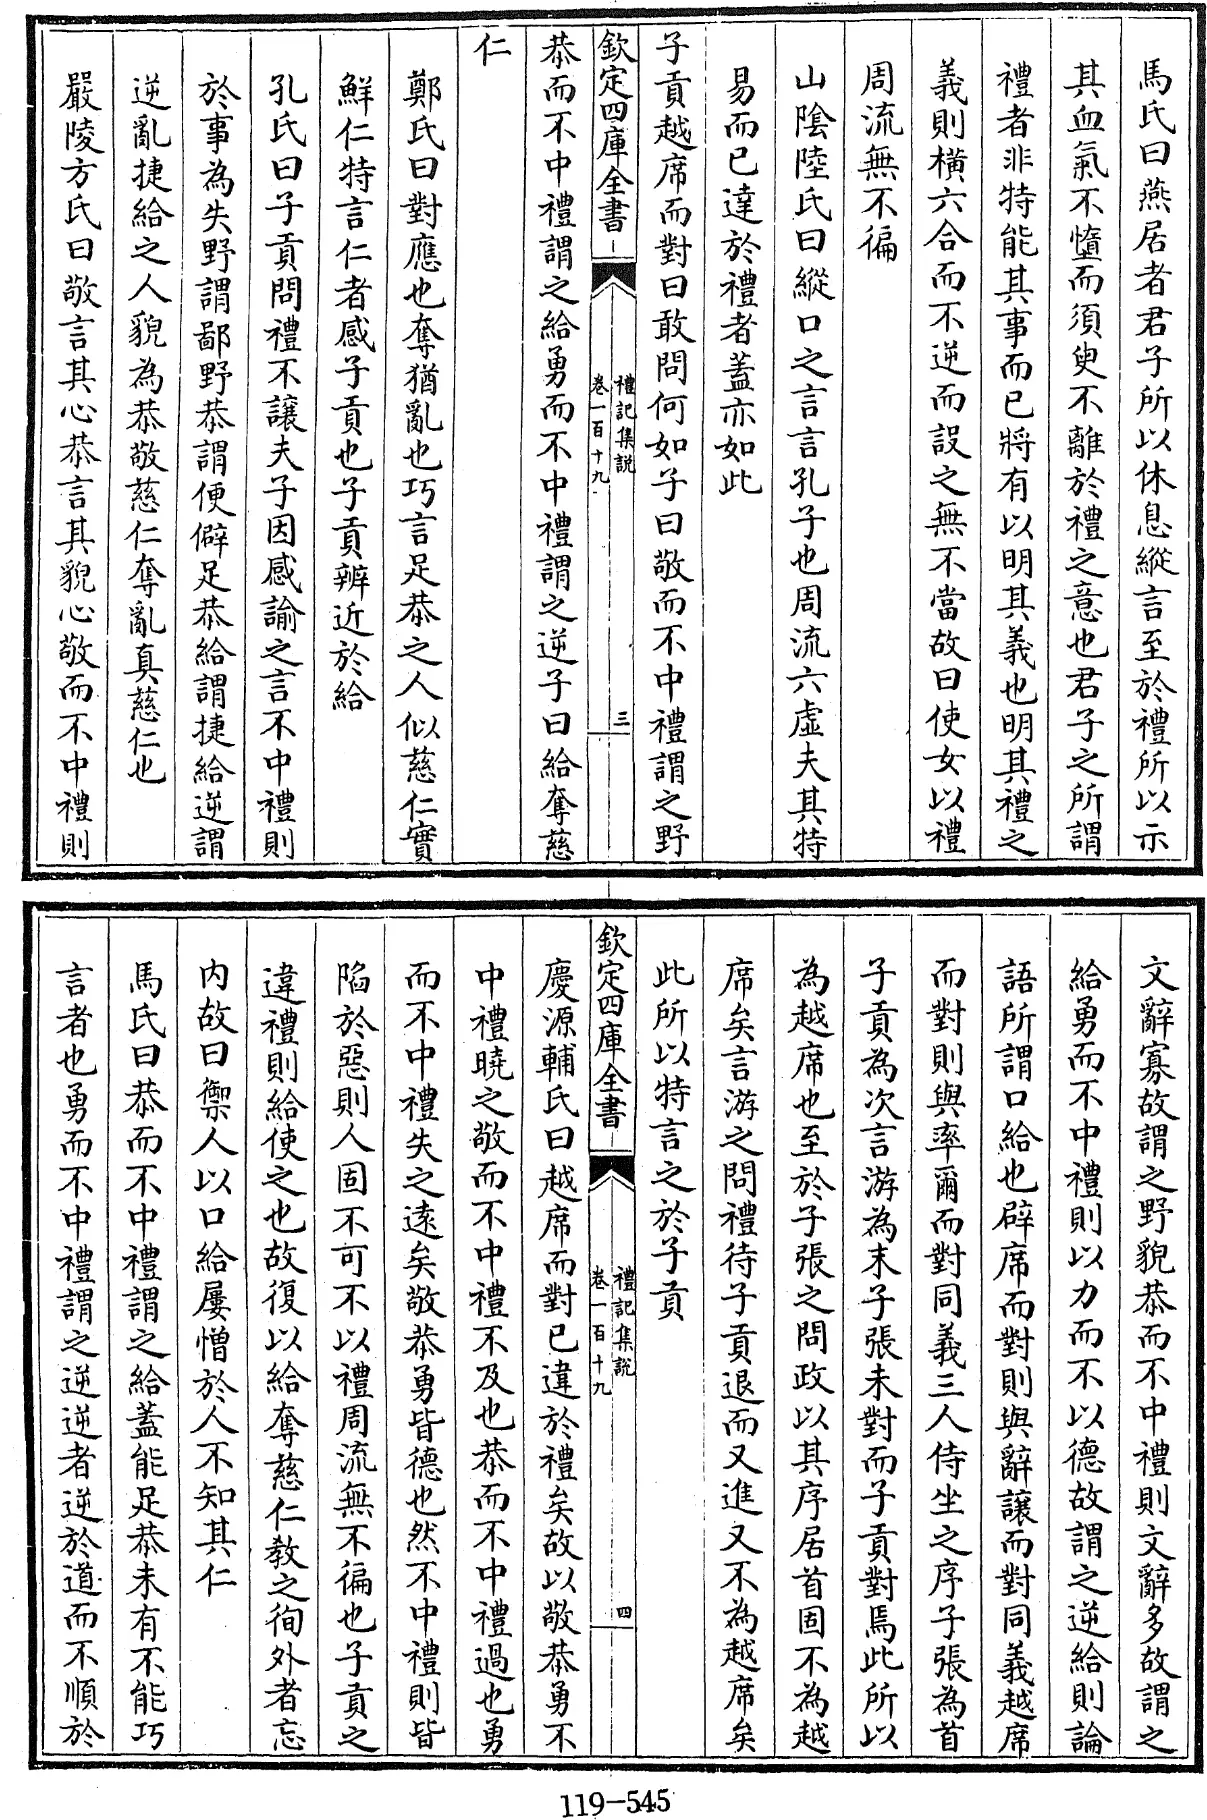 馬氏曰燕居者君子所以休息縱言至於禮所以示
其血氣不惰而須臾不離於禮之意也君子之所謂
禮者非特能其事而已將有以明其義也明其禮之
義則橫六合而不逆而設之無不當故曰使女以禮
周流無不徧
山陰陸氏曰縱口之言言孔子也周流六虛夫其特
易而已達於禮者蓋亦如此
子貢越席而對曰敢問何如子曰敬而不中禮謂之野
欽定四庫全書
禮記集說
卷一百十九
三
恭而不中禮謂之給勇而不中禮謂之逆子曰給奪慈
仁
鄭氏曰對應也奪猶亂也巧言足恭之人似慈仁實
鮮仁特言仁者感子貢也子貢辨近於給
孔氏曰子貢問禮不讓夫子因感諭之言不中禮則
於事為失野謂鄙野恭謂便僻足恭給謂捷給逆謂
逆亂捷給之人貌為恭敬慈仁奪亂真慈仁也
嚴陵方氏曰敬言其心恭言其貌心敬而不中禮則
文辭寡故謂之野貌恭而不中禮則文辭多故謂之
給勇而不中禮則以力而不以德故謂之逆給則論
語所謂口給也辟席而對則與辭讓而對同義越席
而對則與率爾而對同義三人侍坐之序子張為首
子貢為次言游為末子張未對而子貢對焉此所以
為越席也至於子張之問政以其序居首固不為越
席矣言游之問禮待子貢退而又進又不為越席矣
此所以特言之於子貢
欽定四庫全書
禮記集說
卷一百十九
四
慶源輔氏曰越席而對已違於禮矣故以敬恭勇不
中禮曉之敬而不中禮不及也恭而不中禮過也勇
而不中禮失之遠矣敬恭勇皆德也然不中禮則皆
陷於惡則人固不可不以禮周流無不徧也子貢之
違禮則給使之也故復以給奪慈仁教之徇外者忘
內故曰禦人以口給屢憎於人不知其仁
馬氏曰恭而不中禮謂之給蓋能足恭未有不能巧
言者也勇而不中禮謂之逆逆者逆於道而不順於
119-545